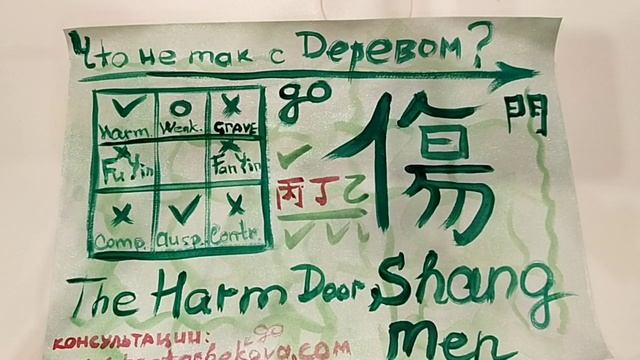 Что не так с Деревом?
go
Harm Weak. GRAVE
Fu Yin Fan Yin
Comp. Ausp. Contr.
丙丁乙
傷門
The Harm Door, Shang
Men
консультации:
go